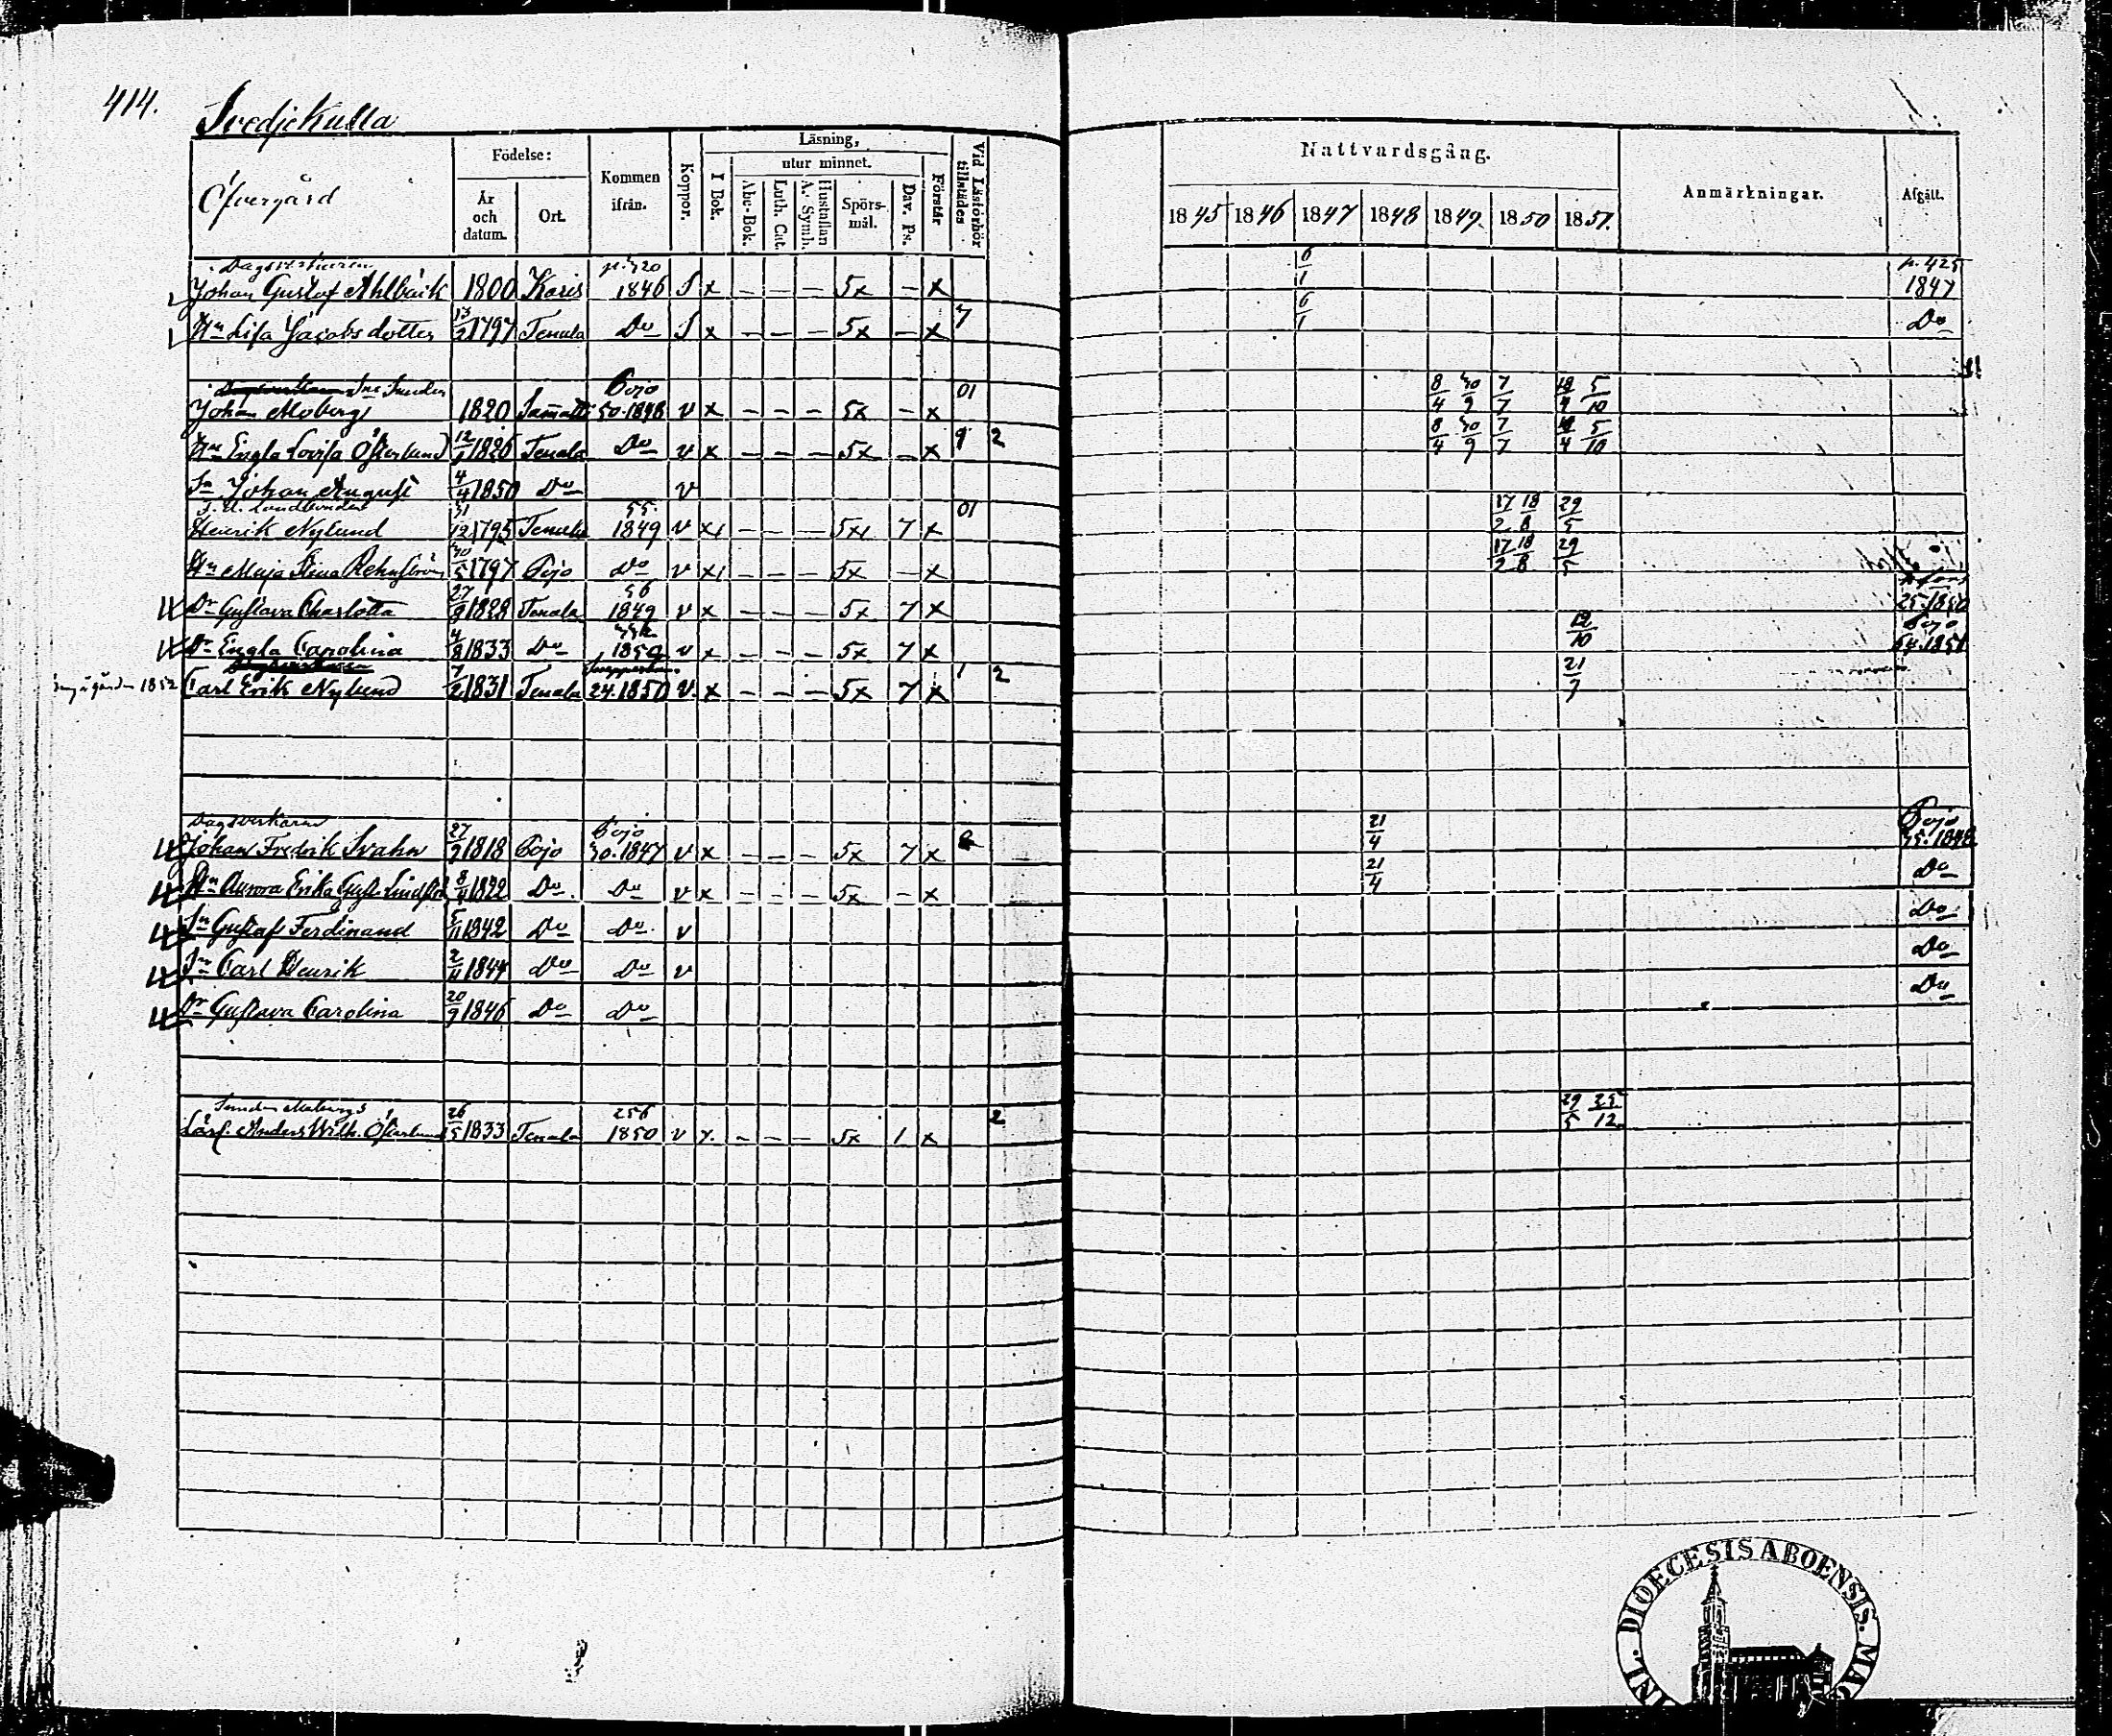 414.
Svedjekulla
Öfvergård
Födelse:
År och datum.
Ort.
Kommen ifrån.
Koppor.
Läsning,
utur minnet.
I Bok.
Abc-Bok.
Luth. Cat.
Hustaflan A. Symb.
Spörsmål.
Dav. Ps.
Förstår
Vid Läsförhör tillstädes
Nattvardsgång.
1845 1846 1847 1848 1849. 1850 1851.
Anmärkningar.
Afgått.
Dagsverkaren p. 420 6/1 p. 425
Johan Gustaf Ahlbäck 1800 Karis 1846 S x – – – 5x – x 1847
Hn Lisa Jacobsdotter 13/2 1797 Tenala Do S x – – – 5x – x 7 6/1 Do
Sme: Smeden Pojo 01 8/4 30/9 7/7 5/10
Johan Moberg 1820 Sammatti 50.1848 v x – – – 5x – x
Hn Engla Lovisa Österlund 1826 Tenala Do v x – – – 5x – x 9 2 8/4 30/9 7/7 5/10
Sn Johan August 4/4 1850 Do v
F. d. Landbonden 31/12 55. 01 17/2 18/8 29/5
Henrik Nylund 1795 Tenala 1849 v x – – – 5x 7 x
Hn Maja Stina Rehnström 30/5 1797 Pojo Do v x – – – 5x – x 17/2 18/8 29/5
Dr Gustava Charlotta 27/9 1828 Tenala 56 1849 v x – – – 5x 7 x 25.1850
Dr Engla Carolina 4/8 1833 Do 1850 v x – – – 5x 7 x 12/10 Pojo 64.1851
Carl Erik Nylund 7/2 1831 Tenala 24.1850 v. x – – – 5x 7 x 1 2 21/7
Dagsverkaren
Johan Fredrik Svahn 27/9 1818 Pojo Pojo 30.1847 v x – – – 5x 7 x 21/4 Pojo 35.1848
Hn Aurora Erika Gust. Lindström 1822 Do. Do v x – – – 5x – x 21/4 Do
Sn Gustaf Ferdinand 5/11 1842 Do Do. v Do
Sn Carl Henrik 2/11 1844 Do Do v Do
Dr Gustava Carolina 20/9 1846 Do Do Do
Smeden Mobergs 256
Lärl. Anders Wilh. Österlund 26/5 1833 Tenala 1850 v x. – – – 5x 1 x 2 29/5 25/12
DIOECESIS ABOENSIS. MAG